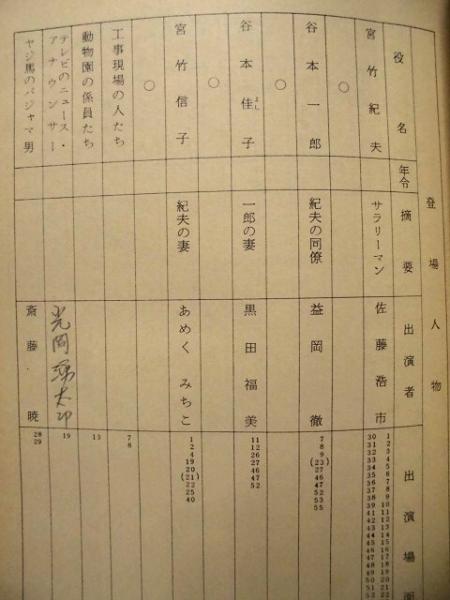 登場人物
役名 年令 摘要 出演者 出演場面
宮竹紀夫 サラリーマン 佐藤浩市 1 2 3 4 5 6 7 8 9 10 11 12 13 14 15 16 17 18 19 20 21 22 30 31 32 33 34 35 36 37 38 39 40 41 42 43 44 45 46 47 48 49 50 51 52
○
谷本一郎 紀夫の同僚 益岡徹 7 8 9 (23) 27 46 47 52 53 55
○
谷本佳子 よし 一郎の妻 黒田福美 11 12 26 27 46 47 52
○
宮竹信子 紀夫の妻 あめくみちこ 1 2 4 19 20 (21) 22 25 40
○
工事現場の人たち 7 8
動物園の係員たち 13
テレビのニュース・
アナウンサー 19
ヤジ馬のパジャマ男 斎藤暁 28 29